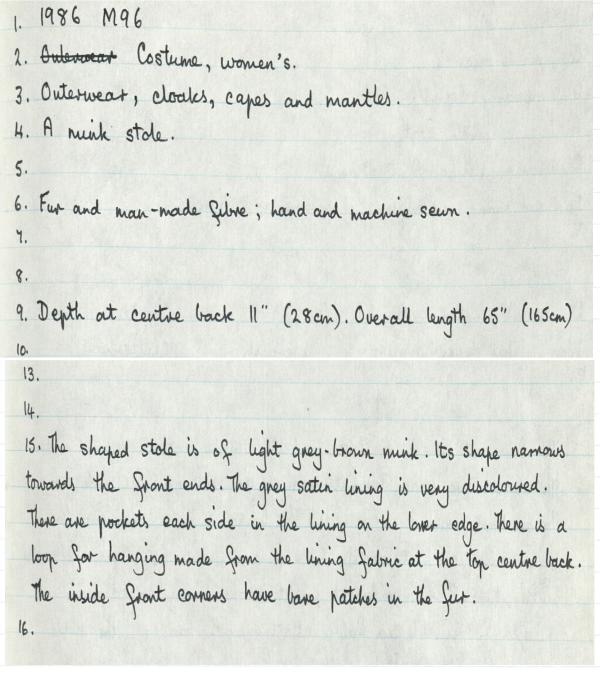 1. 1986 M96
2. Outerwear Costume, women's.
3. Outerwear, cloaks, capes and mantles.
4. A mink stole.
5.
6. Fur and man-made fibre; hand and machine sewn.
7.
8.
9. Depth at centre back 11" (28cm). Overall length 65" (165cm)
10.
13.
14.
15. The shaped stole is of light grey-brown mink. Its shape narrows
towards the front ends. The grey satin lining is very discoloured.
There are pockets each side in the lining on the lower edge. There is a
loop for hanging made from the lining fabric at the top centre back.
The inside front corners have bare patches in the fur.
16.